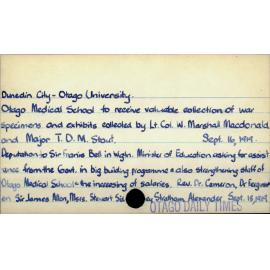 Dunedin City - Otago University.
Otago Medical School to receive valuable collection of war
specimens and exhibits collected by Lt. Col. W. Marshall Macdonald
and Major T. D. M. Stout. Sept. 16, 1919.
Deputation to Sir Francis Bell in Wgtn. Minister of Education asking for assist
ance from the Govt. in big building programme & also strengthening staff of
Otago Medical School & the increasing of salaries. Rev. Dr. Cameron, Dr Ferguson
Sir James Allen, Messrs. Stewart Statham Alexander. Sept. 18, 1919.
OTAGO DAILY TIMES